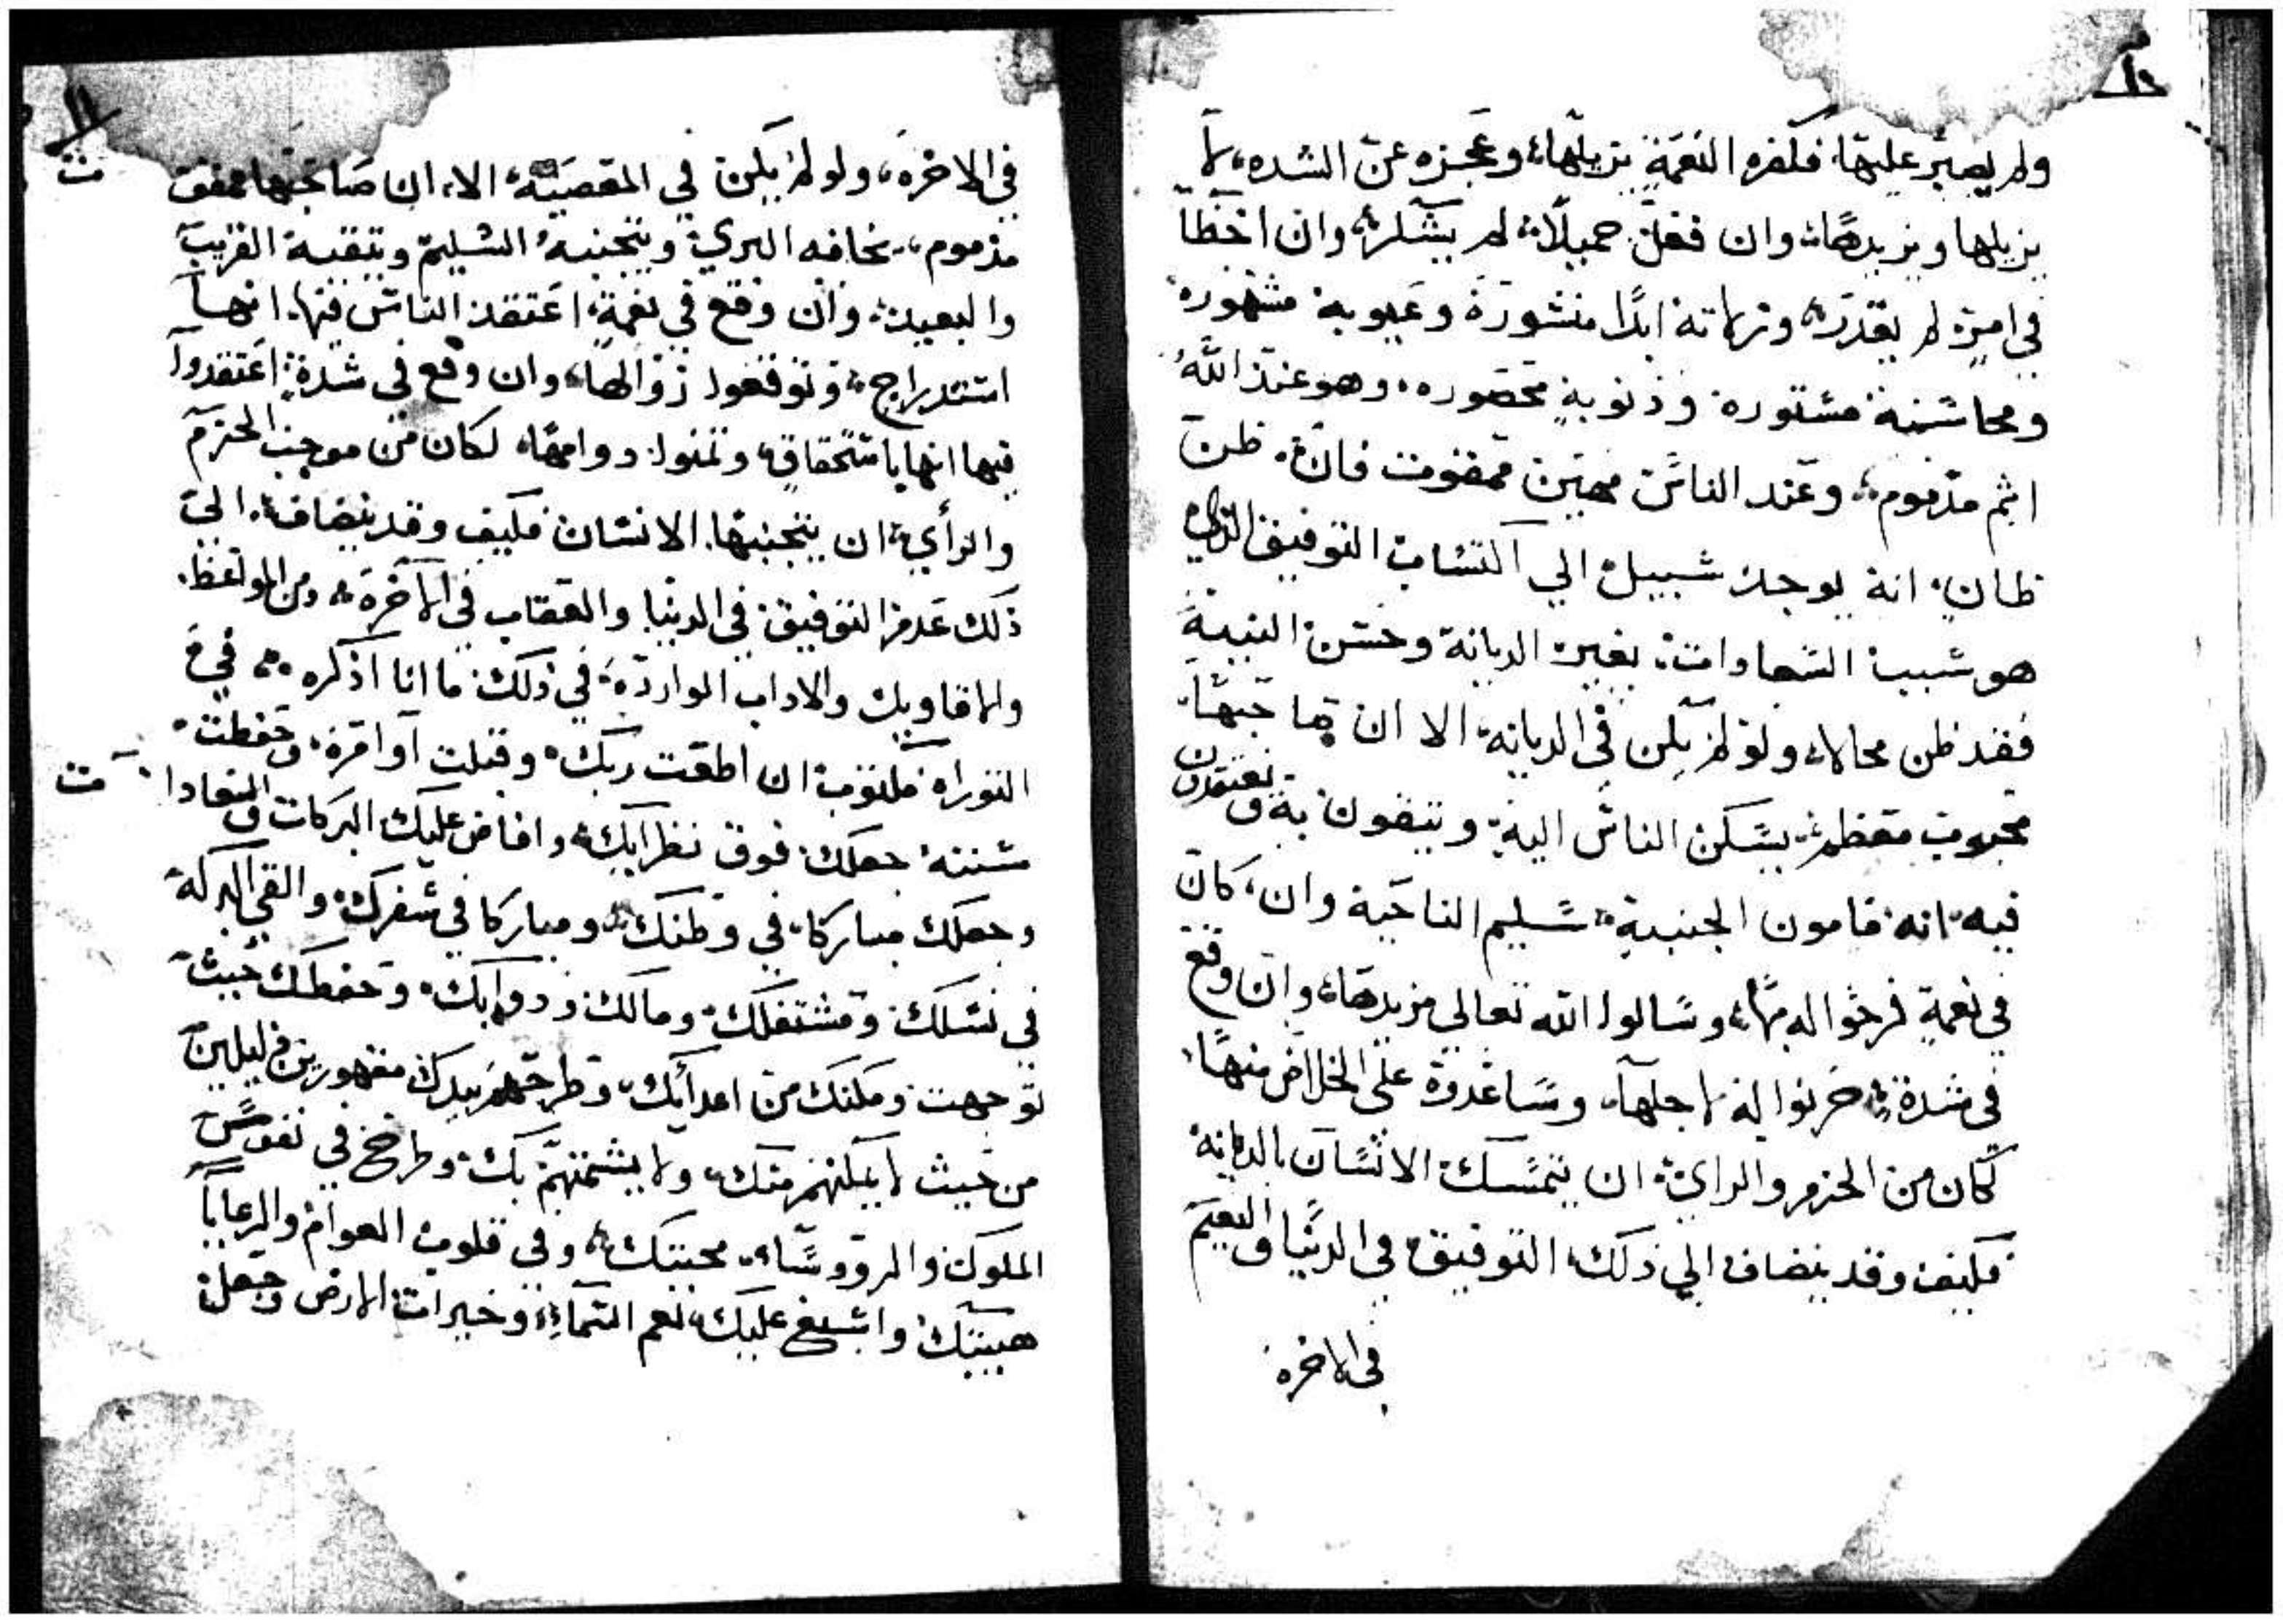 ولم يصبر عليها، فكفره النعمة يزيلها، وعجزه عن الشده، لا
يزيلها ويزيدها، وان فعل جميلاً، لم يشكر، وان اخطا
في امرٍ لم يعذر، وزلاته ابدًا منشورة وعيوبه مشهوره
ومحاسنه مستوره وذنوبه محصوره، وهو عند الله
اثم مذموم، وعند الناس مهين ممقوت فان ظن
ظان، انه يوجد سبيل الي اكتساب التوفيق الذي
هو سبب السعادات، بغير الديانة وحسن النية
فقد ظن محالا، ولو لم يكن في الديانه، الا ان صاحبها
محبوب معظم، يسكن الناس اليه، ويثقون به ويعتقدون
فيه، انه مامون الجنبة، سليم الناحية وان، كان
في نعمةٍ فرحوا له بها، وسالوا الله تعالي مزيدها، وان وقع
في شدةٍ، حزنوا له لاجلها، وساعدوه على الخلاص منها،
لكان من الحزم والراي، ان يتمسك الانسان بالديانة
فكيف وقد ينضاف الي ذلك، التوفيق في الدنيا والنعيم
في الاخره
١١
في الاخرة، ولو لم يكن في المعصية، الا، ان صاحبها ممقوت
مذموم، يخافه البري، ويتجنبه السليم ويتقيه القريب
والبعيد، وان وقع في نعمةٍ، اعتقد الناس فيها، انها
استدراج، وتوقعوا زوالها، وان وقع في شدةٍ، اعتقدوا
فيها انها باستحقاقٍ، وتمنوا دوامها، لكان من موجب الحزم
والرأي، ان يتجنبها، الانسان فكيف وقد ينضاف، الي
ذلك عدم التوفيق، في الدنيا والعقاب في الآخرة، ومن المواعظ
والاقاويل والاداب الواردة، في ذلك ما انا اذكره، في
التوراه مكتوب ان اطعت ربك، وقبلت اوامره، وحفظت
سننه جعلك فوق نظرايك، وافاض عليك البركات والسعادات
وجعلك مباركا، في وطنك، ومباركا في سفرك، والقي البركة
في نسلك ومشتغلك، ومالك، ودوابك، وحفظك حيث
توجهت ومكنك من اعدأيك، وطرحهم بيدك مقهورين ذليلين
من حيث لا يمكنهم منك، ولا يشمتهم بك، وطرح في نفوس
الملوك والرووساء، محبتك، وفي قلوب العوام والرعايا
هيبتك، واسبغ عليك، نعم السماء، وخيرات الارض وجعل